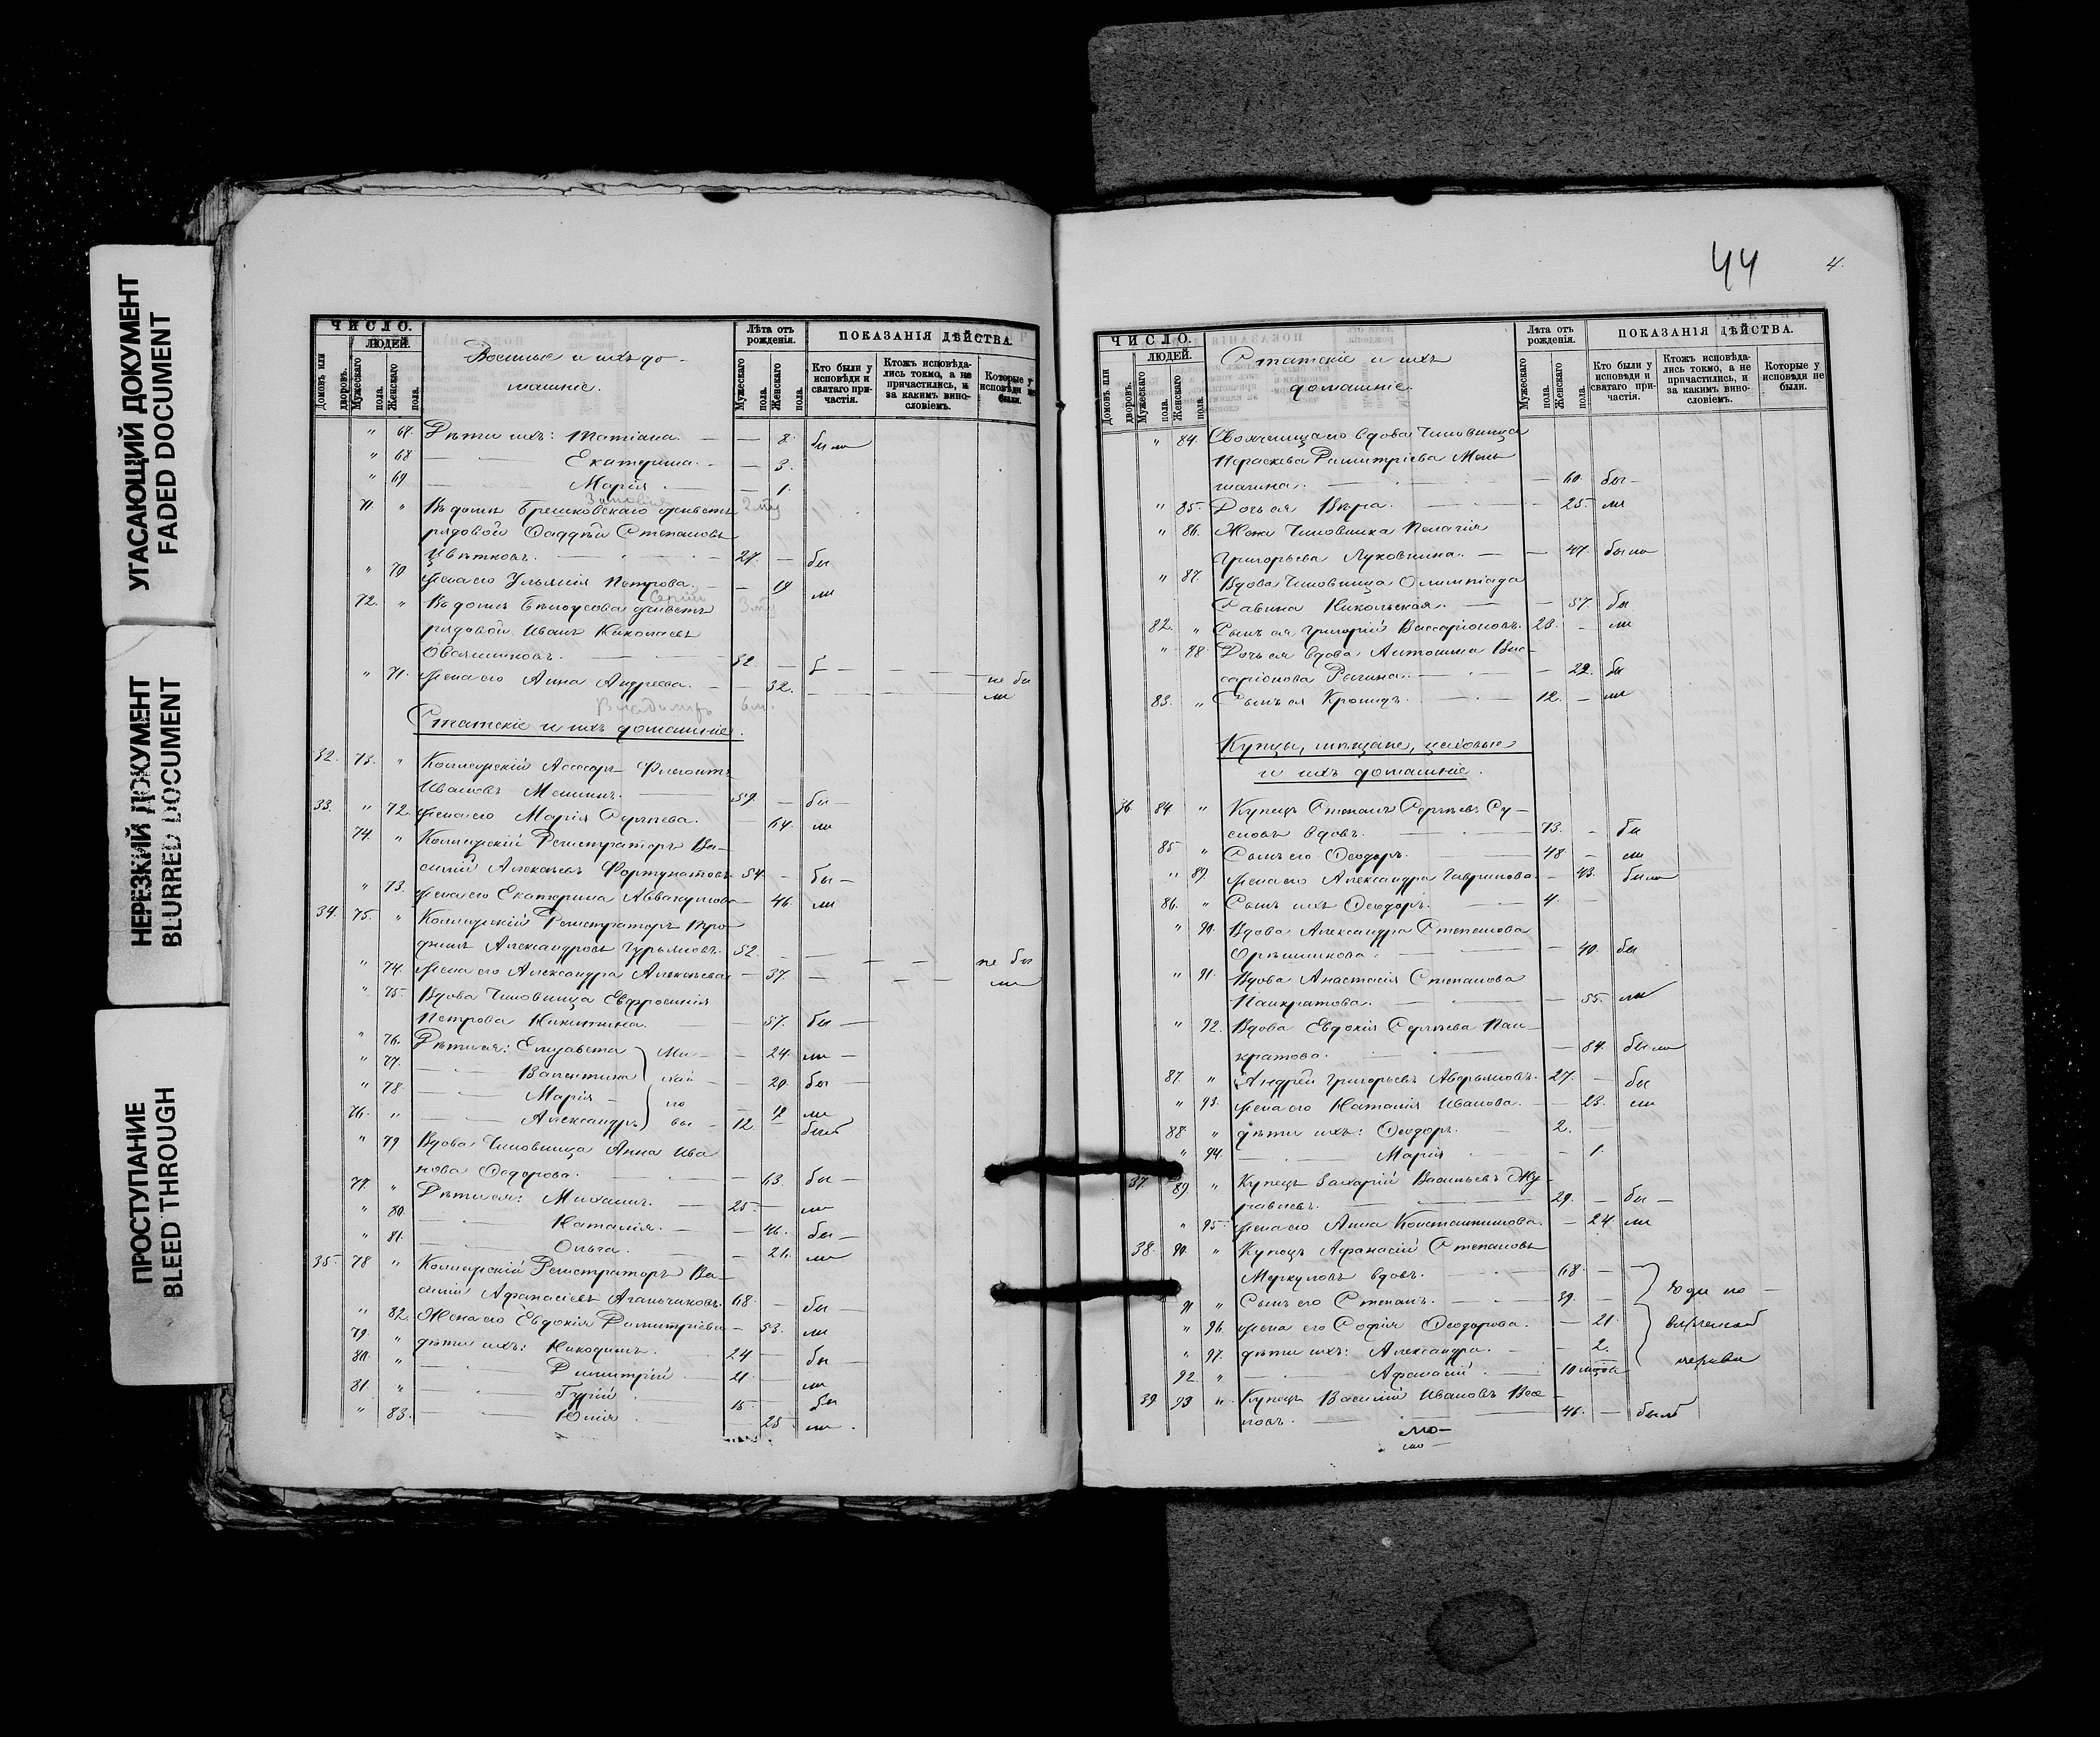 УГАСАЮЩИЙ ДОКУМЕНТ
FADED DOCUMENT
НЕРЕЗКИЙ ДОКУМЕНТ
BLURRED DOCUMENT
ПРОСТУПАНИЕ
BLEED THROUGH
ЧИСЛО.
ЛЮДЕЙ.
Домовъ или дворовъ.
Мужескаго пола.
Женскаго пола.
Военные и ихъ до-
машніе.
Лѣта отъ рожденія.
Мужескаго пола.
Женскаго пола.
ПОКАЗАНІЯ ДѢЙСТВА.
Кто были у исповѣди и святаго причастія.
Ктожъ исповѣдались токмо, а не причастились, и за какимъ винословіемъ.
Которые у исповѣди не были.
" 67. Дѣти ихъ: Татіана. — — 8. были
" 68 — — Екатерина. — — 3.
" 69 — — Марія. — — 1.
Зиновія 2 мц
71. " Въ домѣ Брешковскаго живетъ
рядовой Фаддѣй Степановъ
Цвѣтковъ. — 27. — бы
" 70 Жена его Ульянія Петрова. — 19 ли
Сергій 3 мц
72. " Въ домѣ Бѣлоусова живетъ
рядовой Иванъ Николаевъ
Овсянниковъ. — 32. —
" 71. Жена его Анна Андреева. — — 32. не бы
ли
Владимиръ 6 м.
Статскіе и ихъ домашніе.
32. 73. " Коллежскій Ассесоръ Флегонтъ
Ивановъ Машинъ. — 59. — бы —
33. " 72. Жена его Марія Сергѣева. — 64. ли
74. " Коллежскій Регистраторъ Ва-
силій Алексѣевъ Фортунатовъ. 54. — бы —
" 73. Жена его Екатерина Аввакумова — 46. ли
34. 75. " Коллежскій Регистраторъ Тро-
фимъ Александровъ Гурьяновъ. 52. — — не бы
" 74. Жена его Александра Алексѣева — 37. — — ли
" 75. Вдова Чиновница Евфросинія
Петрова Никитина. — 57. бы —
" 76. Дѣти ея: Елизавета Ми- — 24. ли —
" 77. — — Валентина хай — 20. бы —
" 78. — — Марія — ло — 19 ли
76. " — — Александръ вы — 12. — былъ
" 79 Вдова Чиновница Анна Ива
нова Федорова. — 63. бы —
77. " Дѣти ея: Михаилъ. — 25. — ли
" 80. — — Наталія. — 46. бы —
" 81. — — Ольга. — 21. ли
35. 78 " Коллежскій Регистраторъ Ва-
силій Афанасіевъ Агапчиковъ. 68. — бы —
" 82. Жена его Евдокія Димитріева — 53. ли
79. " Дѣти ихъ: Никодимъ. 24 — бы —
80. " — — Димитрій 21. ли
81. " — — Гурій 15. — бы
" 83. — — Юлія — 25 ли.
44
4.
ЧИСЛО.
ЛЮДЕЙ.
Домовъ или дворовъ.
Мужескаго пола.
Женскаго пола.
Статскіе и ихъ
домашніе.
Лѣта отъ рожденія.
Мужескаго пола.
Женскаго пола.
ПОКАЗАНІЯ ДѢЙСТВА.
Кто были у исповѣди и святаго причастія.
Ктожъ исповѣдались токмо, а не причастились, и за какимъ винословіемъ.
Которые у исповѣди не были.
" 84. вдова Чиновница
Параскева Димитріева
— 60. бы —
" 85. Дочь ея Вѣра. — 25. ли
" 86. Жена Чиновника Пелагія
Григорьева Луковкина. — — 47. были
" 87. Вдова Чиновница Олимпіада
Савина Никольская. — — 57. бы
82. " Сынъ ея Григорій Виссаріоновъ. 20. — ли
" 88. Дочь ея вдова Антонина Вис-
саріонова — 22. бы
83. " Сынъ ея Кронидъ. — 12. — ли
Купцы, мѣщане, цеховые
и ихъ домашніе.
36. 84. " Купецъ Степанъ Сергѣевъ Су-
словъ вдовъ. — 73. — бы
85 " Сынъ его Ѳеодоръ. — 48 — ли
" 89. Жена его Александра Гаврилова. — 43. были
86. " Сынъ ихъ Ѳеодоръ. — 4. —
" 90. Вдова Александра Степанова
Орѣшникова. — — 40. бы
" 91. Вдова Анастасія Степанова
Панкратова. — — 55. ли
" 92. Вдова Евдокія Сергѣева Пан-
кратова. — — 84. были
87. " Андрей Григорьевъ Аверьяновъ. 27. — бы
" 93. Жена его Наталія Иванова. — 23. ли
88 " Дѣти ихъ: Ѳеодоръ. — 2. —
" 94. — — Марія — 1.
37. 89. " Купецъ Захарій Васильевъ Жу-
равлевъ. — 29. — бы —
" 95. Жена его Анна Константинова. — 24. ли
38. 90. " Купецъ Афанасій Степановъ
Меркуловъ вдовъ. — 68. —
91 " Сынъ его Степанъ. — 39. —
" 96. Жена его Софія Ѳеодорова. — 21.
" 97. Дѣти ихъ: Александра. — — 2.
92. " — — Афанасій 10 мцовъ
39. 93 " Купецъ Василій Ивановъ
— 46. — былъ